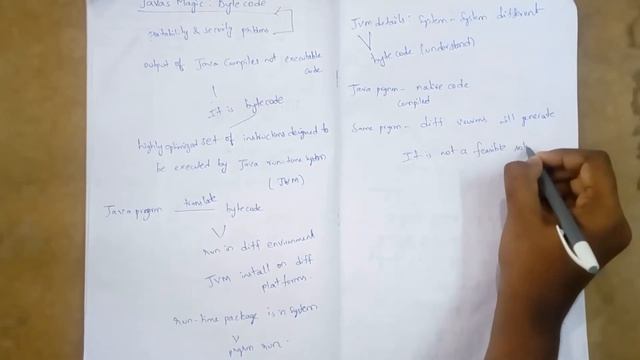 Javas Magic: Bytecode
& security
output of Java Compiler not executable
code
It is bytecode
highly optimized set of instructions designed to
be executed by Java run-time system
(JVM)
Java program translate bytecode
run in diff environment
JVM install on diff
platforms.
run-time package is in system
prgrm run.
JVM details: System - System different
bytecode (understand)
Java prgrm - native code
compiled
Same prgrm - diff will generate
It is not a feasible